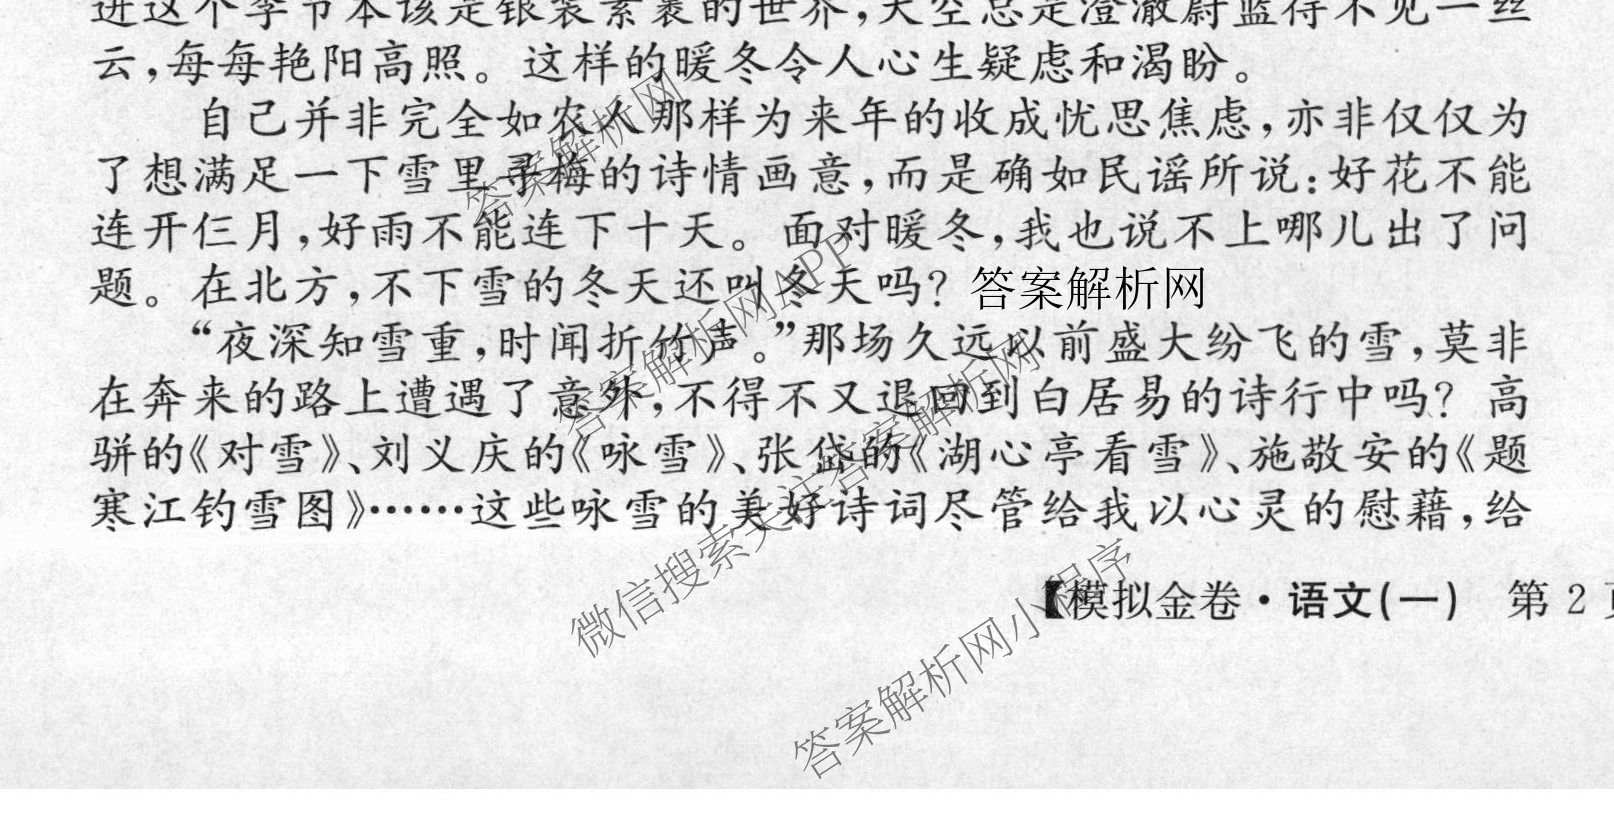 进这个季节本该是银装素裹的世界,天空总是澄澈蔚蓝得不见一丝
云,每每艳阳高照。这样的暖冬令人心生疑虑和渴盼。
自己并非完全如农人那样为来年的收成忧思焦虑,亦非仅仅为
了想满足一下雪里寻梅的诗情画意,而是确如民谣所说:好花不能
连开仨月,好雨不能连下十天。面对暖冬,我也说不上哪儿出了问
题。在北方,不下雪的冬天还叫冬天吗? 答案解析网
“夜深知雪重,时闻折竹声。”那场久远以前盛大纷飞的雪,莫非
在奔来的路上遭遇了意外,不得不又退回到白居易的诗行中吗? 高
骈的《对雪》、刘义庆的《咏雪》、张岱的《湖心亭看雪》、施敬安的《题
寒江钓雪图》……这些咏雪的美好诗词尽管给我以心灵的慰藉,给
【模拟金卷·语文(一) 第 2
答案解析网
答案解析网APP
微信搜索关注答案解析网
答案解析网小程序